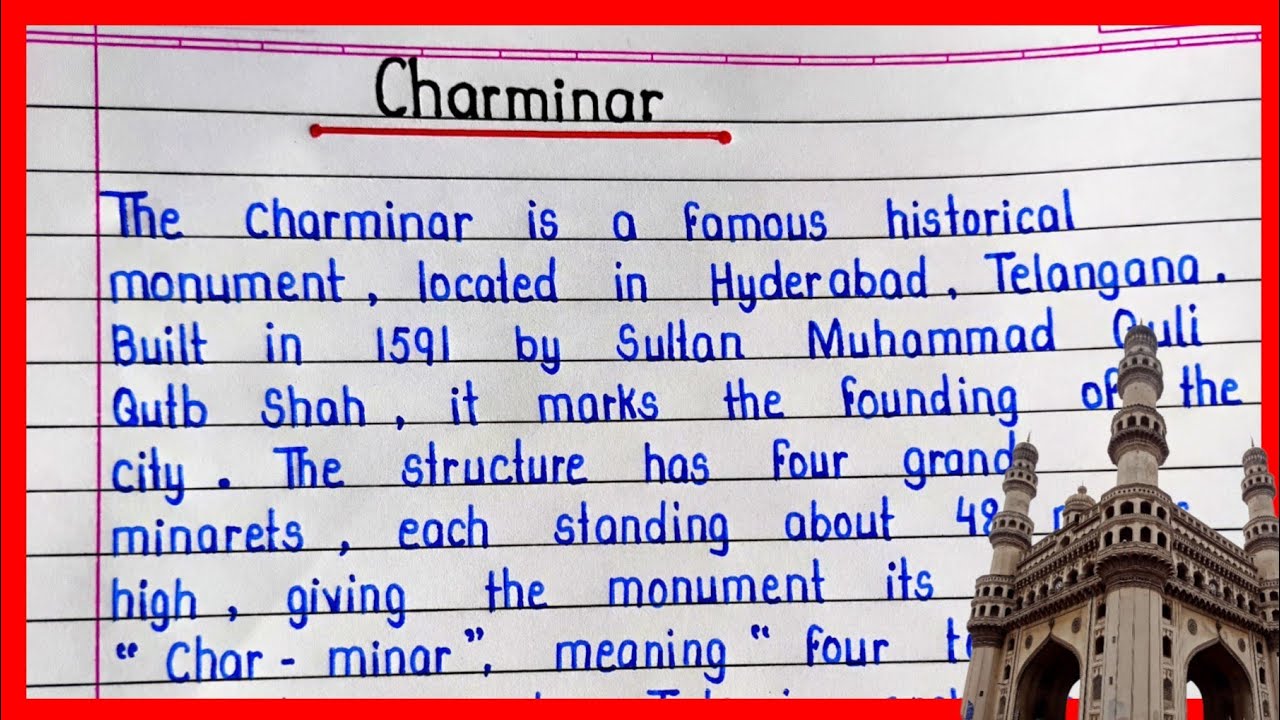 Charminar
The Charminar is a famous historical
monument, located in Hyderabad, Telangana.
Built in 1591 by Sultan Muhammad Quli
Qutb Shah, it marks the founding of the
city. The structure has four grand
minarets, each standing about 48
high, giving the monument its
"Char-minar", meaning "four